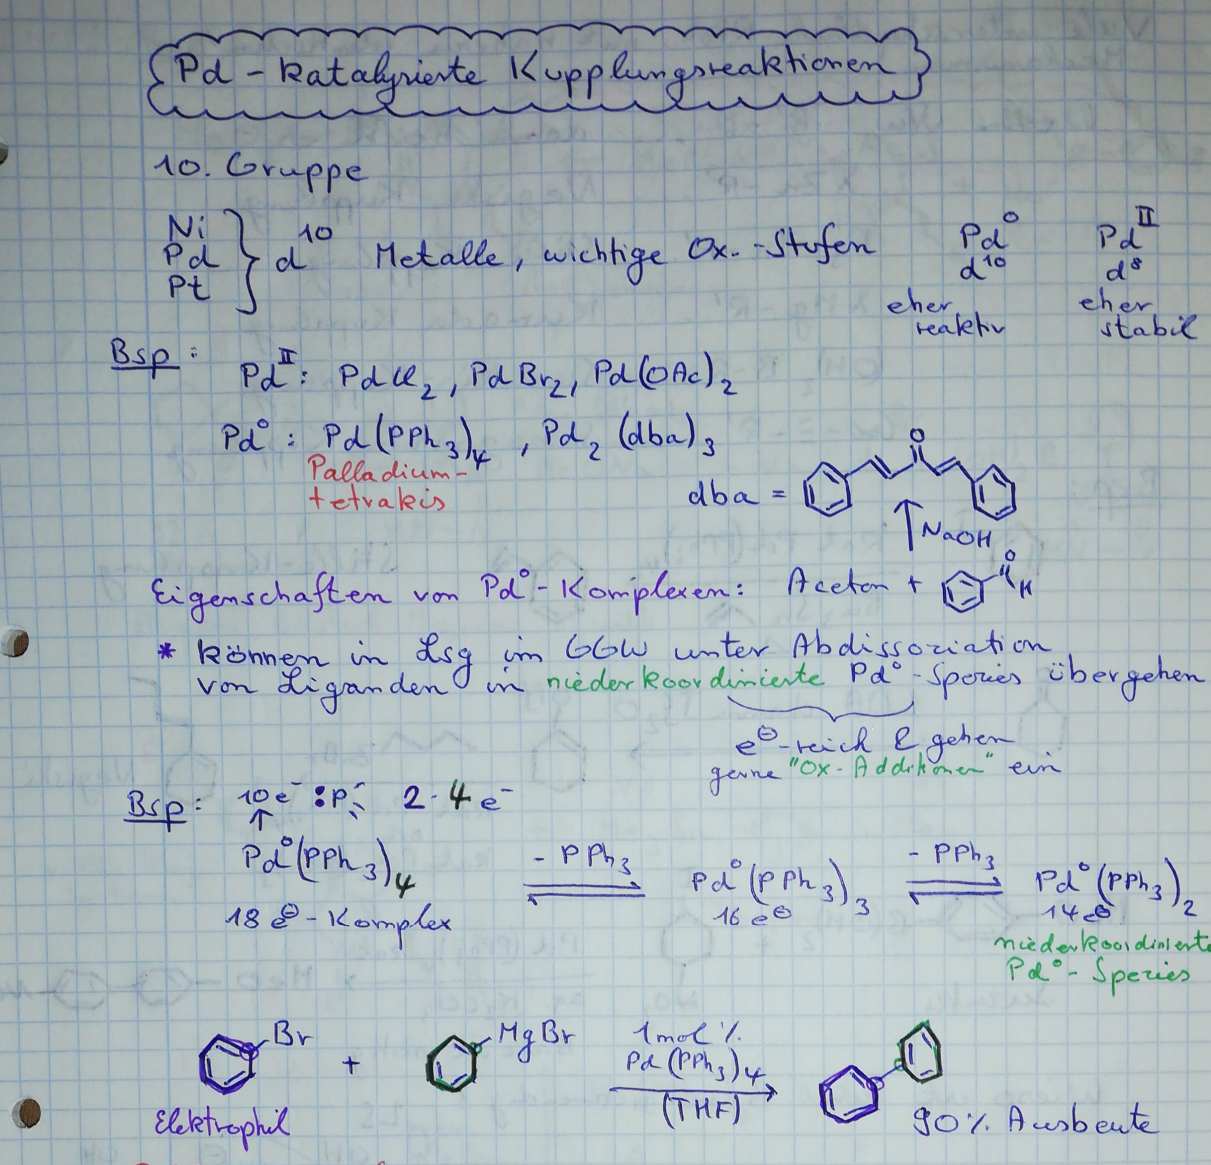 Pd - katalysierte Kupplungsreaktionen
10. Gruppe
Ni
Pd
Pt
d¹⁰ Metalle, wichtige Ox.-Stufen
Pd⁰
d¹⁰
eher
reaktiv
Pd^II
d⁸
eher
stabil
Bsp:
Pd^II: PdCl₂, PdBr₂, Pd(OAc)₂
Pd⁰: Pd(PPh₃)₄, Pd₂(dba)₃
Palladium-
tetrakis
dba =
O
NaOH
Eigenschaften von Pd⁰-Komplexen: Aceton +
O
H
* können in Lsg im GGW unter Abdissoziation
von Liganden in niederkoordinierte Pd⁰-Spezies übergehen
e⊖-reich & gehen
gerne "Ox-Additionen" ein
Bsp: 10e⁻ :P 2·4e⁻
↑
Pd⁰(PPh₃)₄ ⇌ - PPh₃ Pd⁰(PPh₃)₃ ⇌ - PPh₃ Pd⁰(PPh₃)₂
18 e⊖-Komplex 16 e⊖ 14 e⊖
niederkoordinierte
Pd⁰-Spezies
Br + MgBr
1mol%
Pd(PPh₃)₄
(THF)
Elektrophil
90% Ausbeute